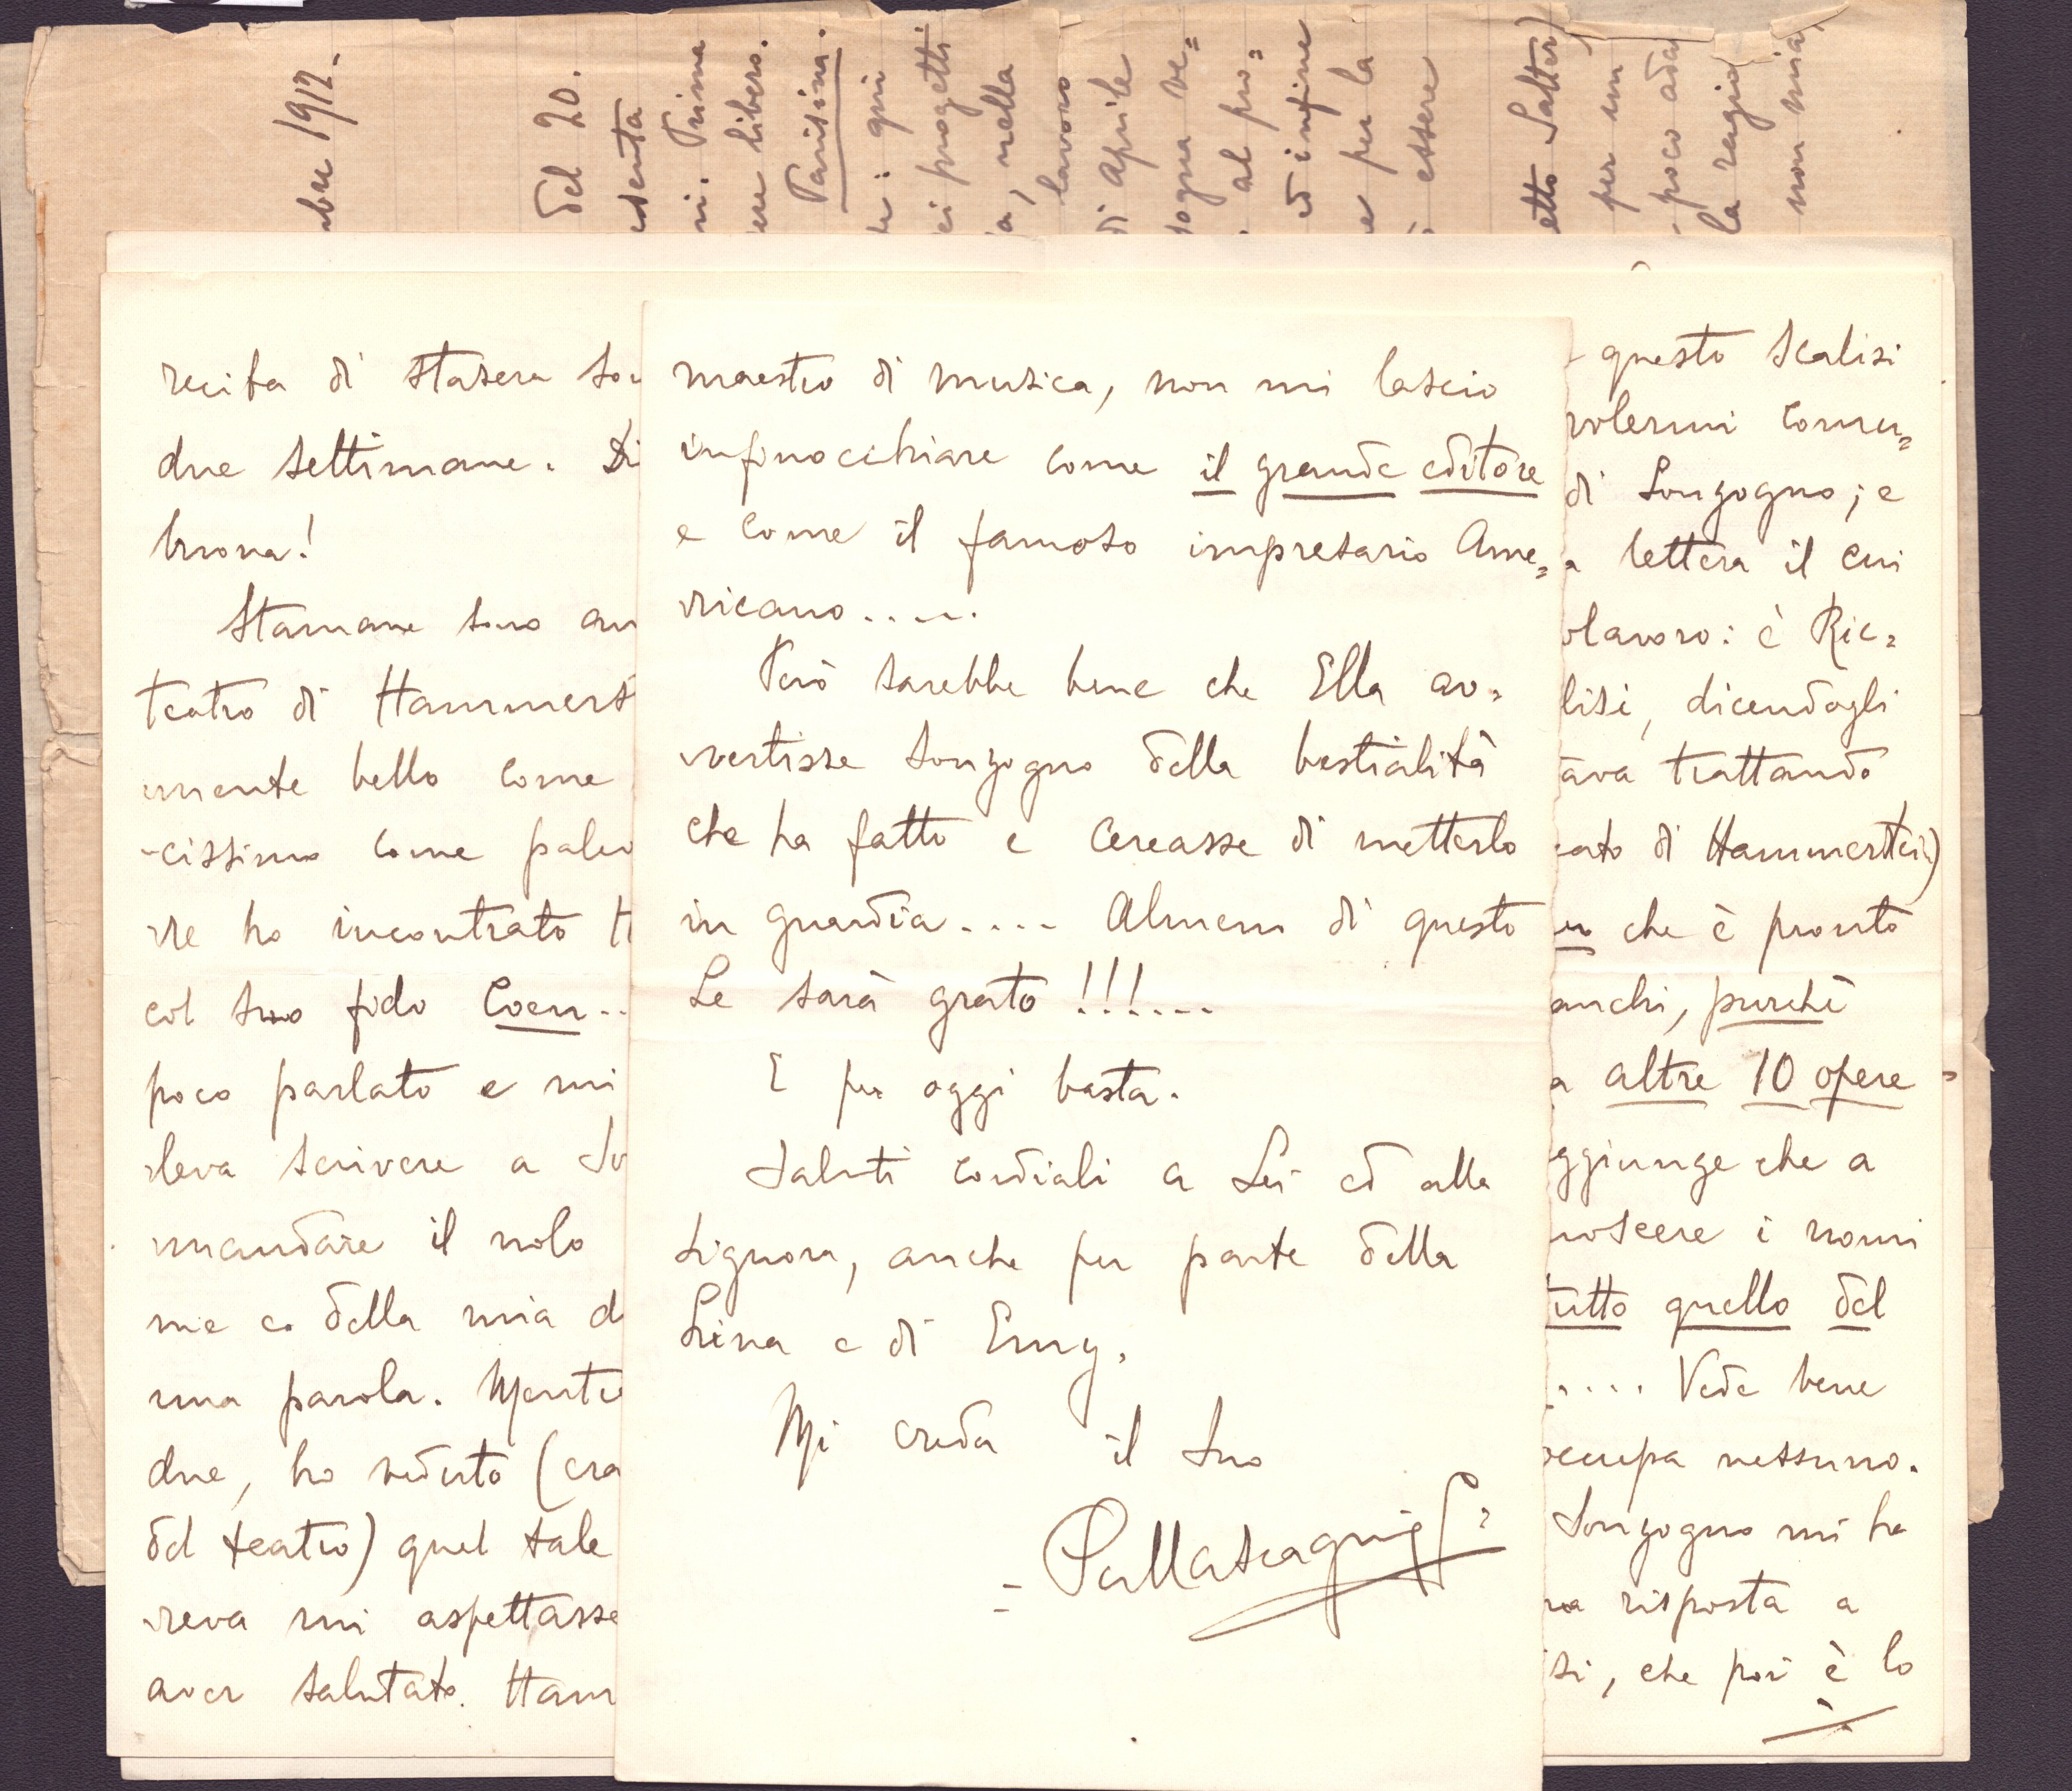 bre 1912.
del 20.
ni. Prima
ere libero.
Parisina.
qui
ci progetti
a, nella
lavoro
di Aprile
ogna ve=
al pro=
ed infine
e per la
essere
etto Salter)
per un
poco ada
la ragio
non mia,
recita di stasera so
due settimane. Di
buona!
Stamane sono an
teatro di Hammerst
mente bello come
cissimo come palco
re ho incontrato H
col suo fido Coen..
poco parlato e mi
leva scrivere a So
mandare il nolo
me e della mia d
una parola. Mentre
due, ho veduto (era
del teatro) quel tale
reva mi aspettasse
aver salutato. Ham
maestro di musica, non mi lascio
infinocchiare come il grande editore
e come il famoso impresario Ame=
ricano.....
Però sarebbe bene che Ella av=
vertisse Sonzogno della bestialità
che ha fatto e cercasse di metterlo
in guardia.... Almeno di questo
Le sarà grato!!!...
E per oggi basta.
Saluti cordiali a Lei ed alla
Signora, anche per parte della
Lina e di Emy.
Mi creda il Suo
PMascagni
questo Scalisi
volermi comu=
di Sonzogno; e
a lettera il cui
olavoro: è Ric=
lisi, dicendogli
ava trattando
ato di Hammerstein)
che è pronto
anchi, purchè
a altre 10 opere
ggiunge che a
noscere i nomi
tutto quello del
.... Vede bene
occupa nessuno.
Sonzogno mi ha
risposta a
si, che poi è lo